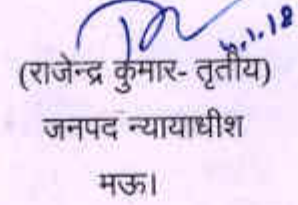 (राजेन्द्र कुमार- तृतीय)
जनपद न्यायाधीश
मऊ।